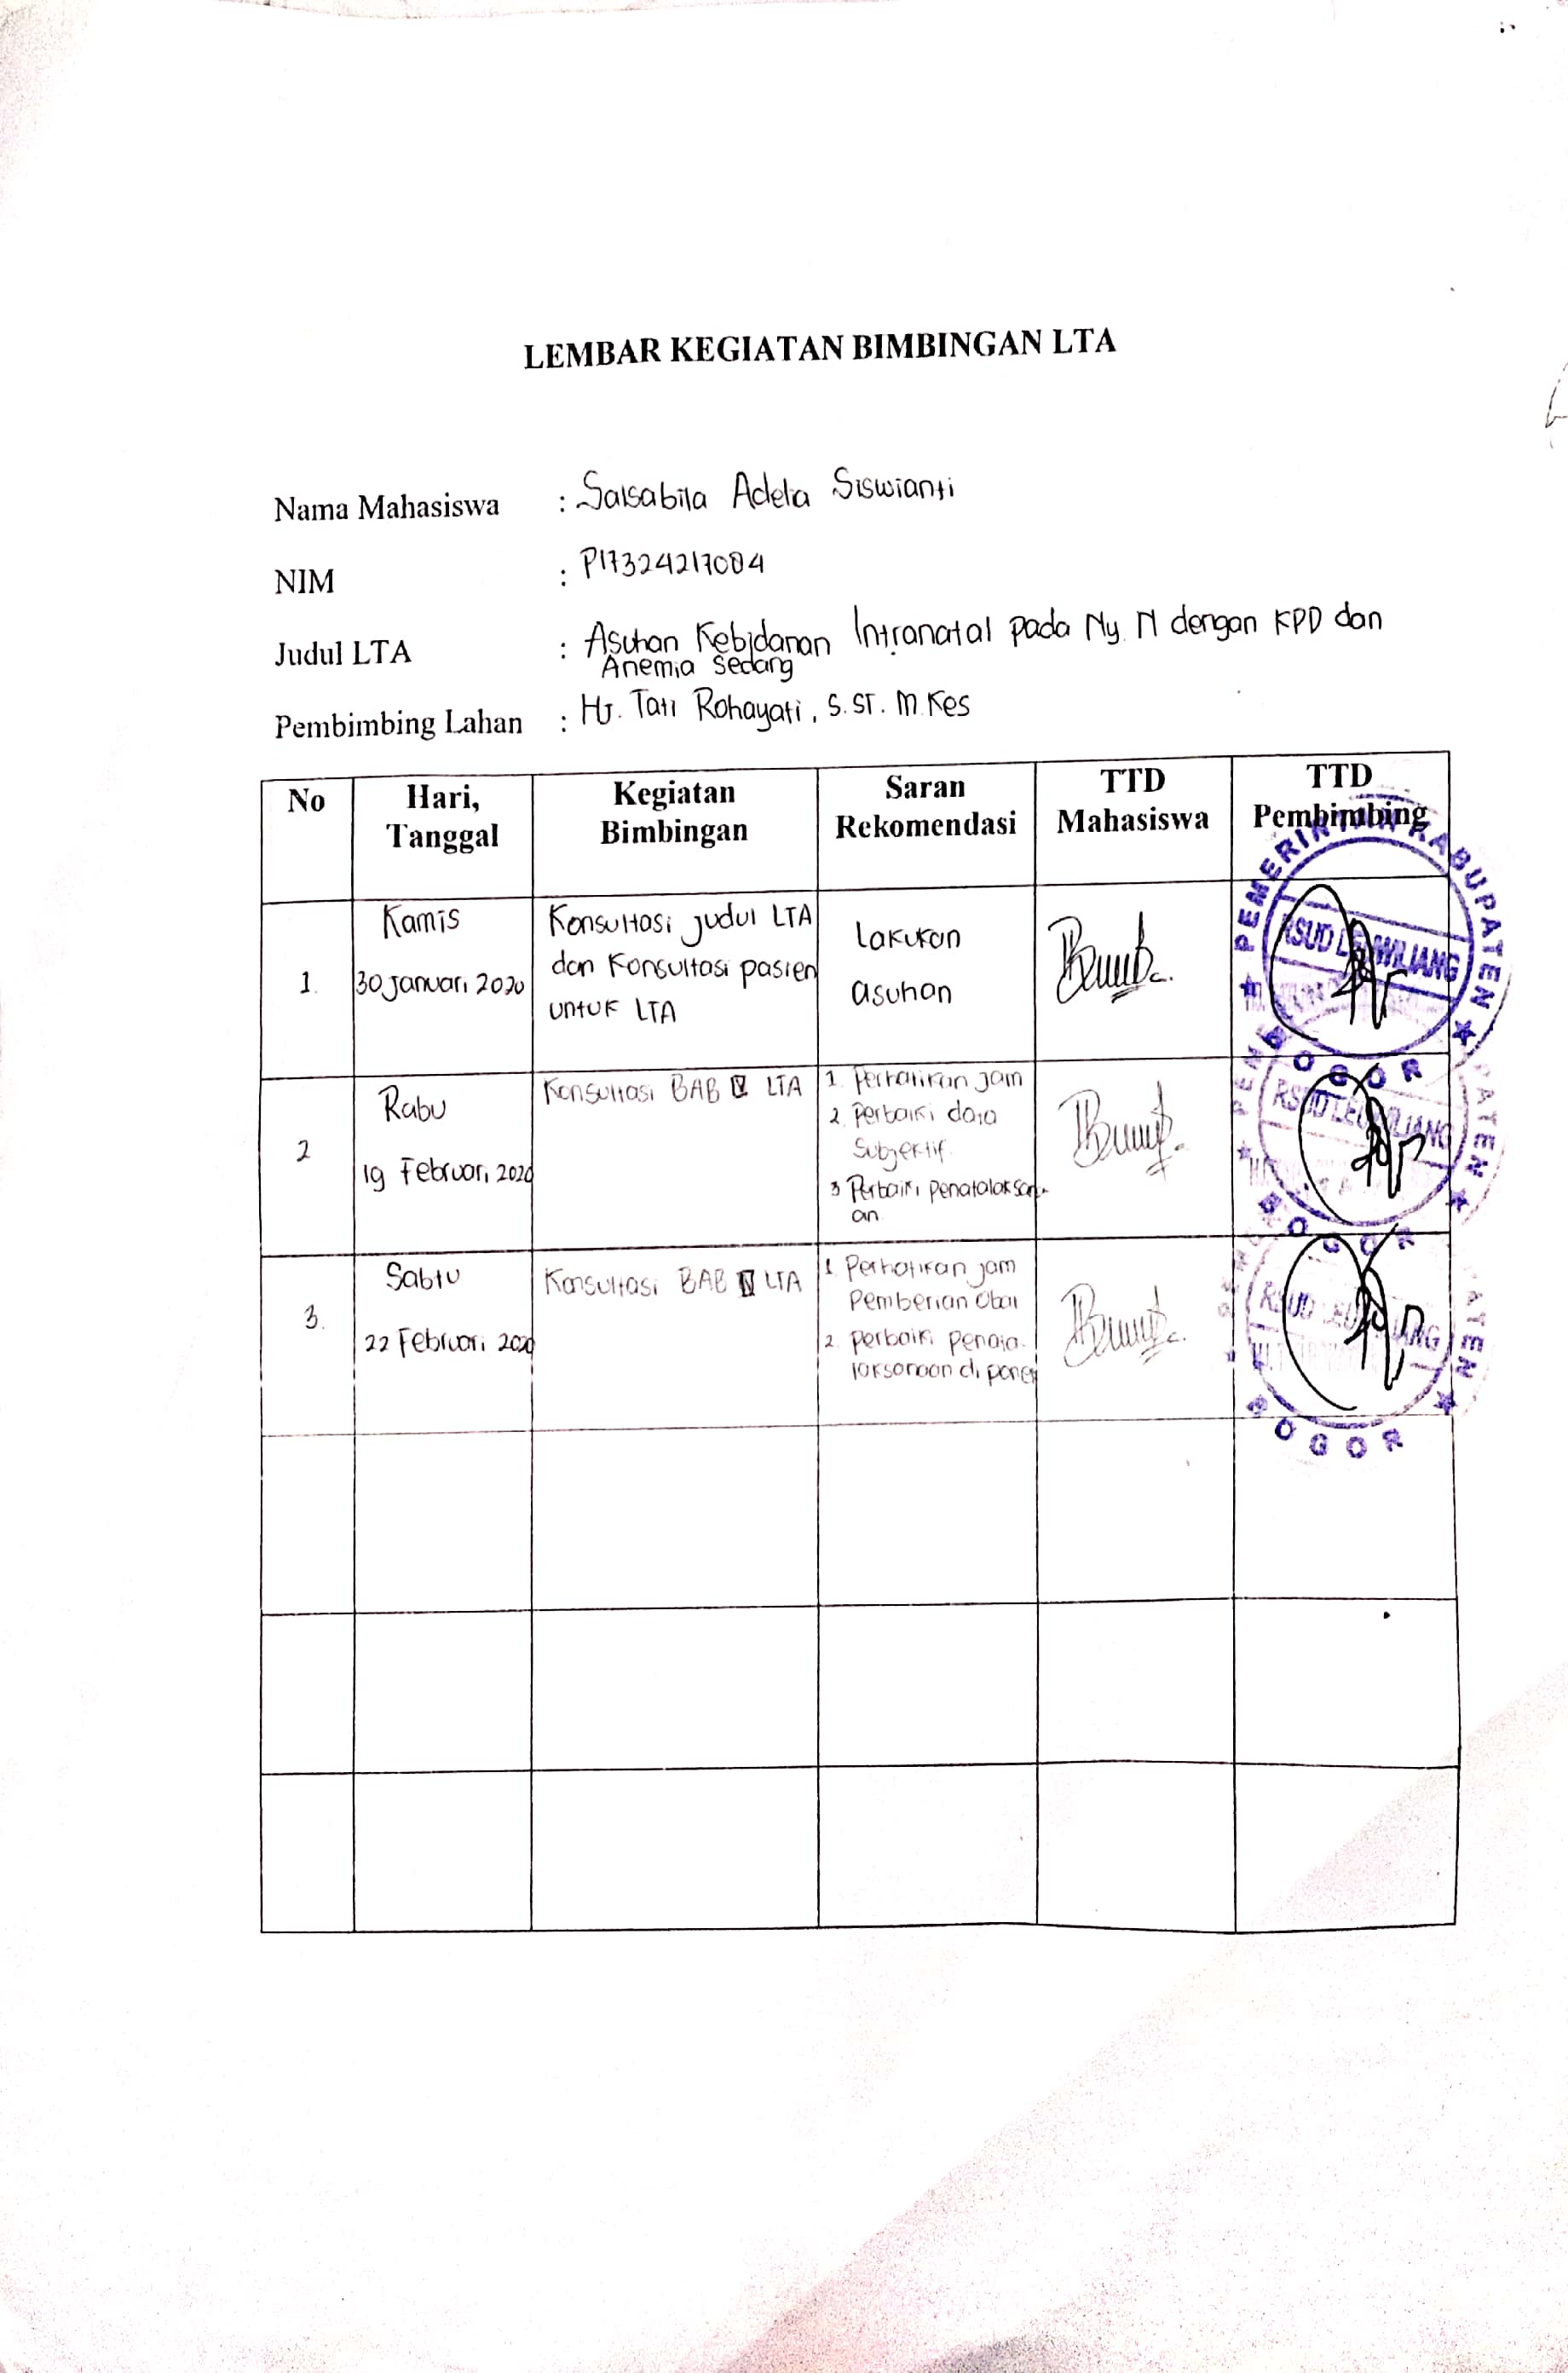 LEMBAR KEGIATAN BIMBINGAN LTA
Nama Mahasiswa : Salsabila Adelia Siswianti
NIM : P17324217084
Judul LTA : Asuhan Kebidanan Intranatal pada Ny. N dengan KPD dan
Anemia Sedang
Pembimbing Lahan : Hj. Tati Rohayati, S.ST. M.Kes
No
Hari,
Tanggal
Kegiatan
Bimbingan
Saran
Rekomendasi
TTD
Mahasiswa
TTD
Pembimbing
1.
Kamis
30 Januari 2020
Konsultasi judul LTA
dan Konsultasi pasien
untuk LTA
Lakukan
asuhan
PEMERINTAH KABUPATEN
RSUD LEUWILIANG
BOGOR
2
Rabu
19 Februari 2020
Konsultasi BAB LTA
1. Perhatikan jam
2. Perbaiki data
Subjektif.
3 Perbaiki penatalaksana-
an.
RSUD LEUWILIANG
BOGOR
3.
Sabtu
22 Februari 2020
Konsultasi BAB IV LTA
1. Perhatikan jam
Pemberian Obat
2. perbaiki penata-
laksanaan di ponek
RSUD LEUWILIANG
BOGOR